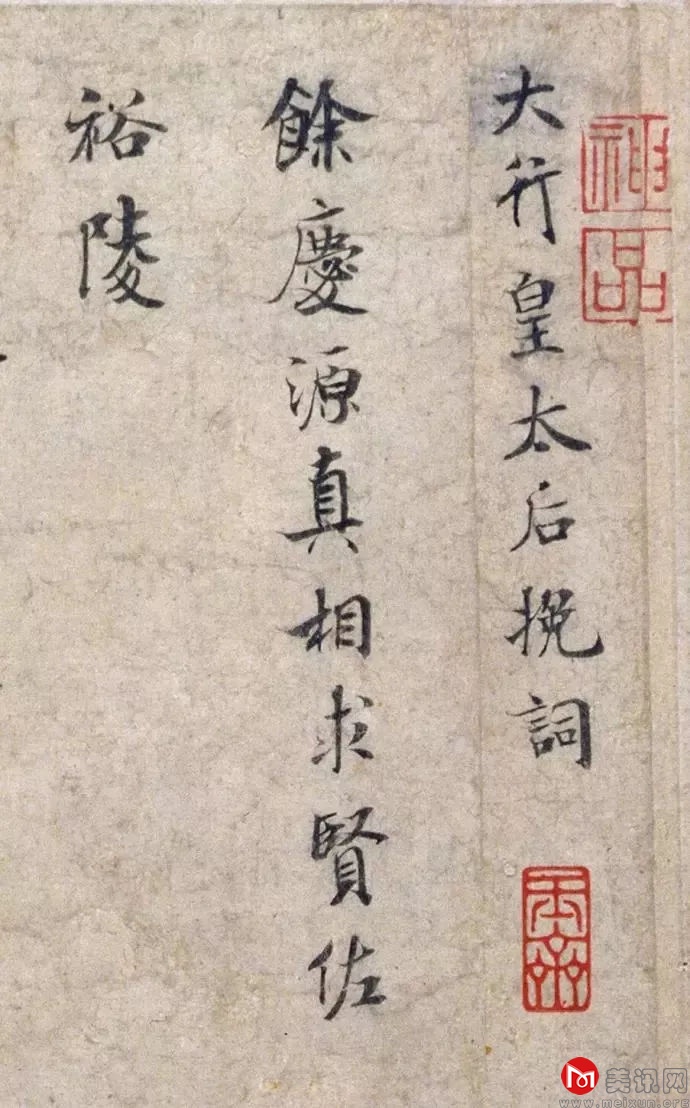 大行皇太后挽詞
餘慶源真相求賢佐
裕陵
神品
美讯网
www.meixun.org